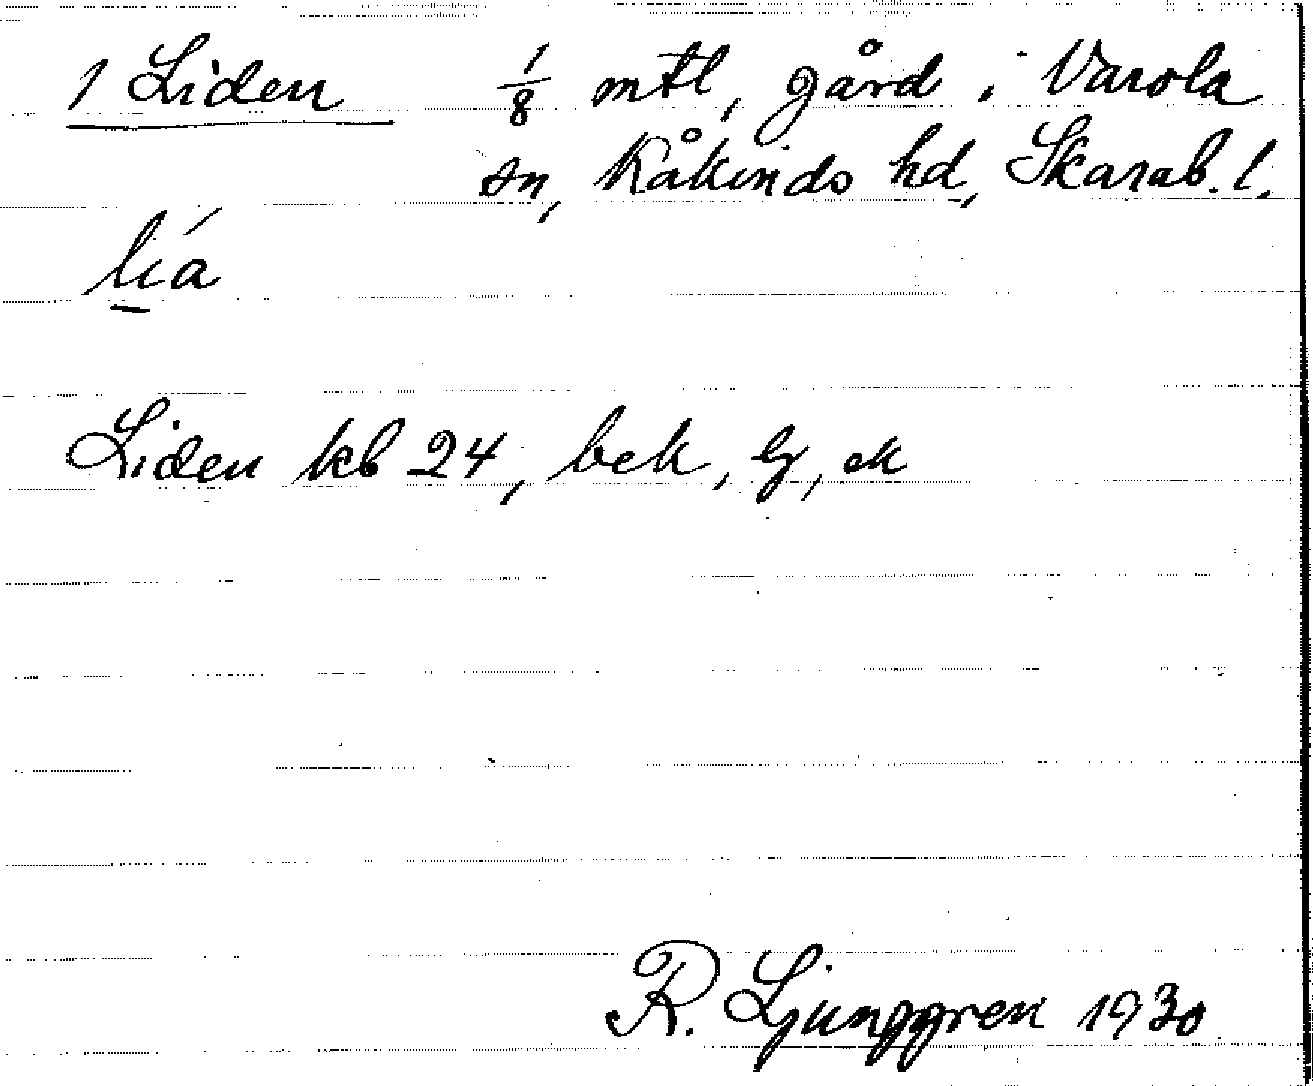 1 Liden 1/8 mtl, gård i Varola
sn, Kåkinds hd, Skarab. l.
lia
Liden kb 24, bek, Lg, ek
R. Ljunggren 1930